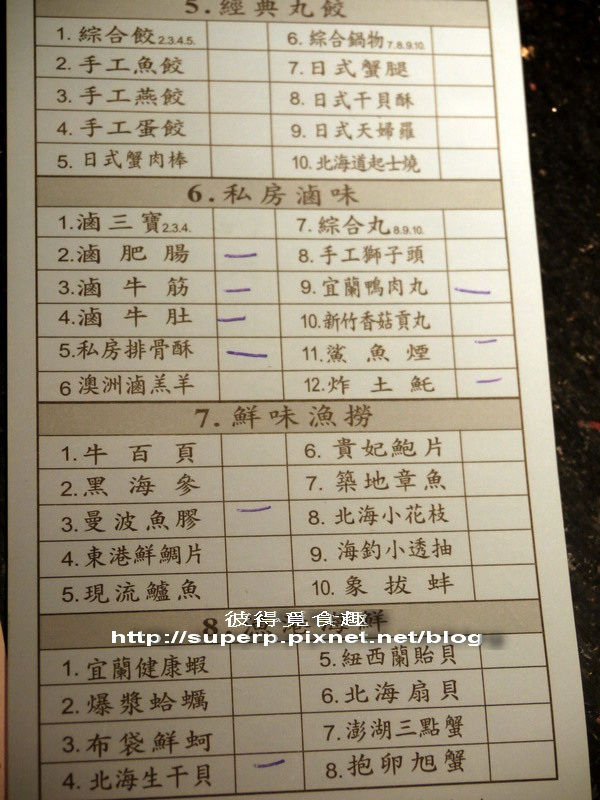 5.經典丸餃
1.綜合餃2.3.4.5. 6.綜合鍋物7.8.9.10.
2.手工魚餃 7.日式蟹腿
3.手工燕餃 8.日式干貝酥
4.手工蛋餃 9.日式天婦羅
5.日式蟹肉棒 10.北海道起士燒
6.私房滷味
1.滷三寶2.3.4. 7.綜合丸8.9.10.
2.滷肥腸 8.手工獅子頭
3.滷牛筋 9.宜蘭鴨肉丸
4.滷牛肚 10.新竹香菇貢丸
5.私房排骨酥 11.鯊魚煙
6澳洲滷羔羊 12.炸土魠
7.鮮味漁撈
1.牛百頁 6.貴妃鮑片
2.黑海參 7.築地章魚
3.曼波魚膠 8.北海小花枝
4.東港鮮鯛片 9.海釣小透抽
5.現流鱸魚 10.象拔蚌
8 鮮
彼得覓食趣
http://superp.pixnet.net/blog
1.宜蘭健康蝦 5.紐西蘭貽貝
2.爆漿蛤蠣 6.北海扇貝
3.布袋鮮蚵 7.澎湖三點蟹
4.北海生干貝 8.抱卵旭蟹